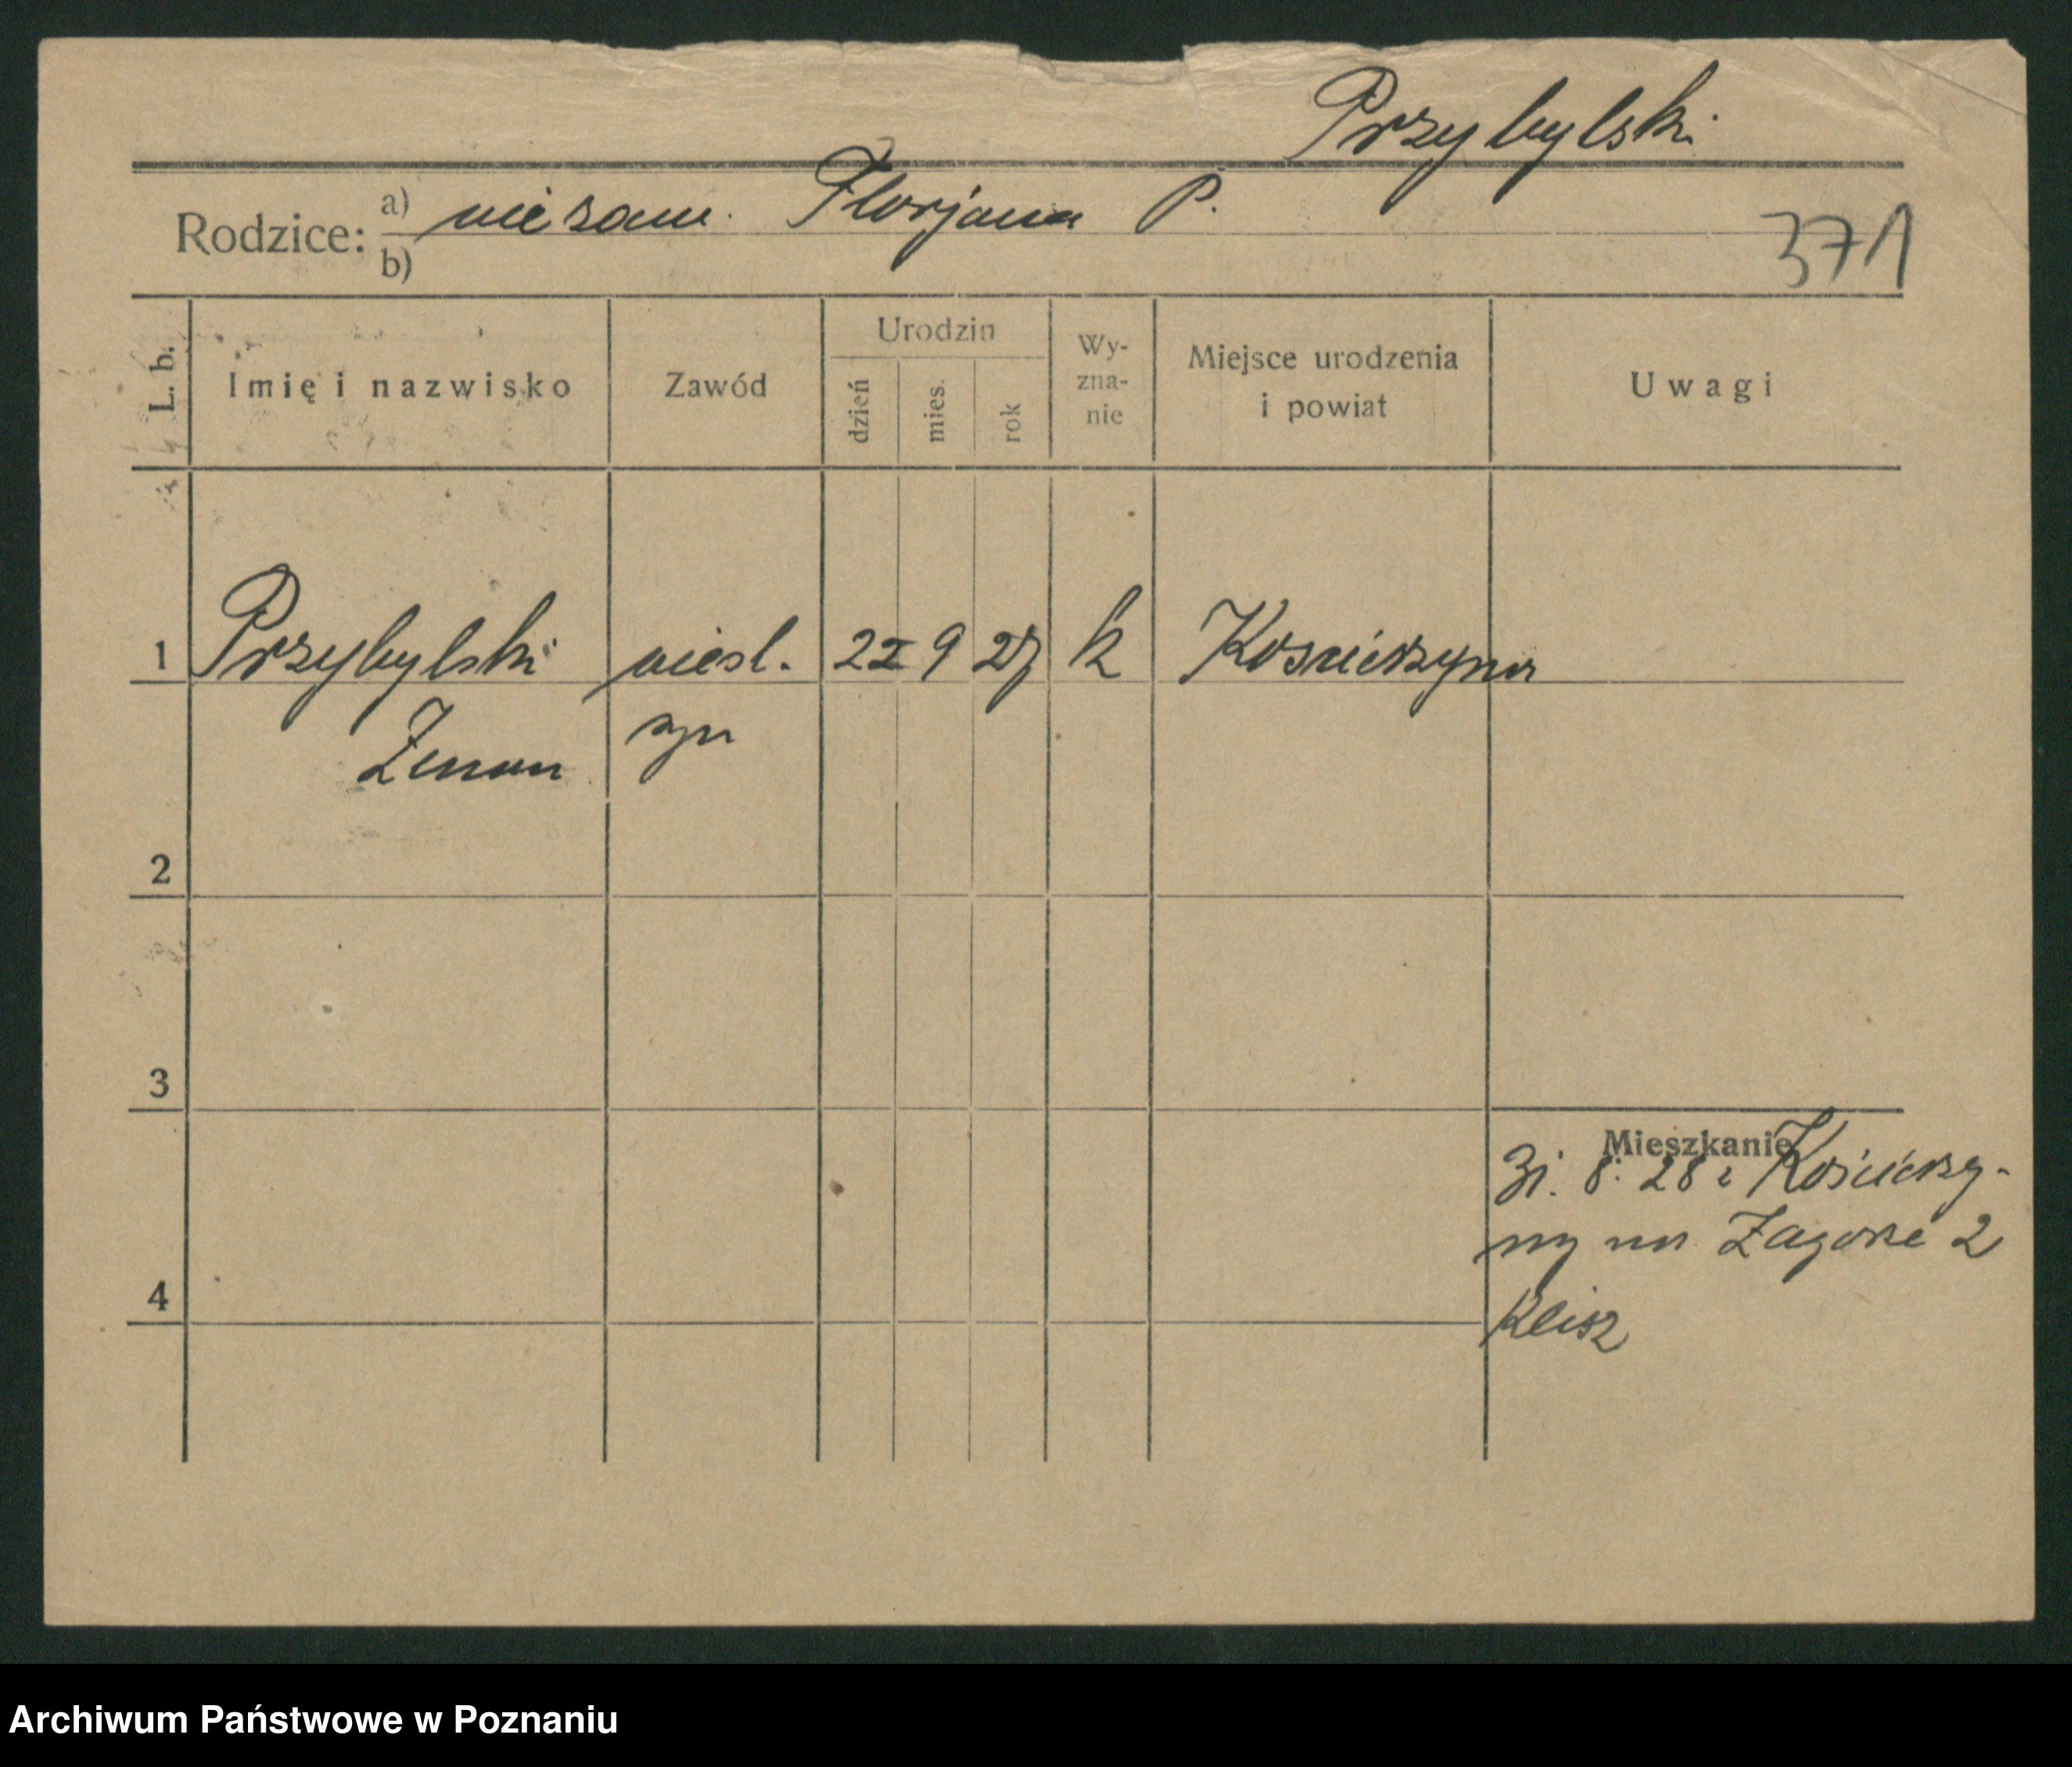 Przybylski
Rodzice: a) niezam. Florjana P.
b)
371
L. b.
Imię i nazwisko
Zawód
Urodzin
dzień
mies.
rok
Wy-
zna-
nie
Miejsce urodzenia
i powiat
Uwagi
1 Przybylski nieśl. 22 9 27 k Kościerzyna
Zenon syn
2
3
4
Mieszkanie
31. 8. 28 z Kościerzy-
ny na Zagórze 2
Klisz
Archiwum Państwowe w Poznaniu